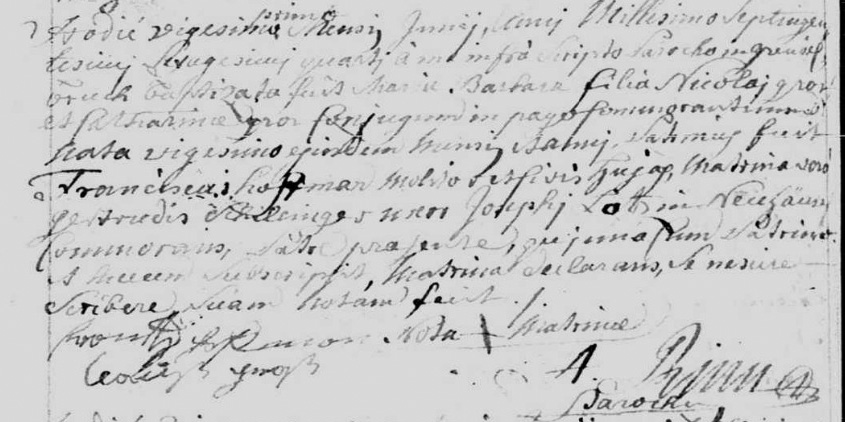 Hodie vigesimo primo Mensis Junij, Anni Millesimo Septingen
tesimij Sexagesimij quarti à me infra Scripto Parocho in
bruck baptizata fuit Maria Barbara filia Nicolaj gros
et Catharinæ gros Conjugum in pago Commorantium
Nata vigesimo ejusdem Mensis et anni, Patrinus fuit
Franciscus Hoffman Molitor et Civis hujas, Matrina verò
gertrudis uxor Josephj Lotz in
Commorans, Patre præsente, qui unà Cum Patrino
et mecum Subscripsit, Matrina declarans, Se nescire
Scribere, Suam notam fecit ./.
Nota + Matrinæ
gross
Parochus